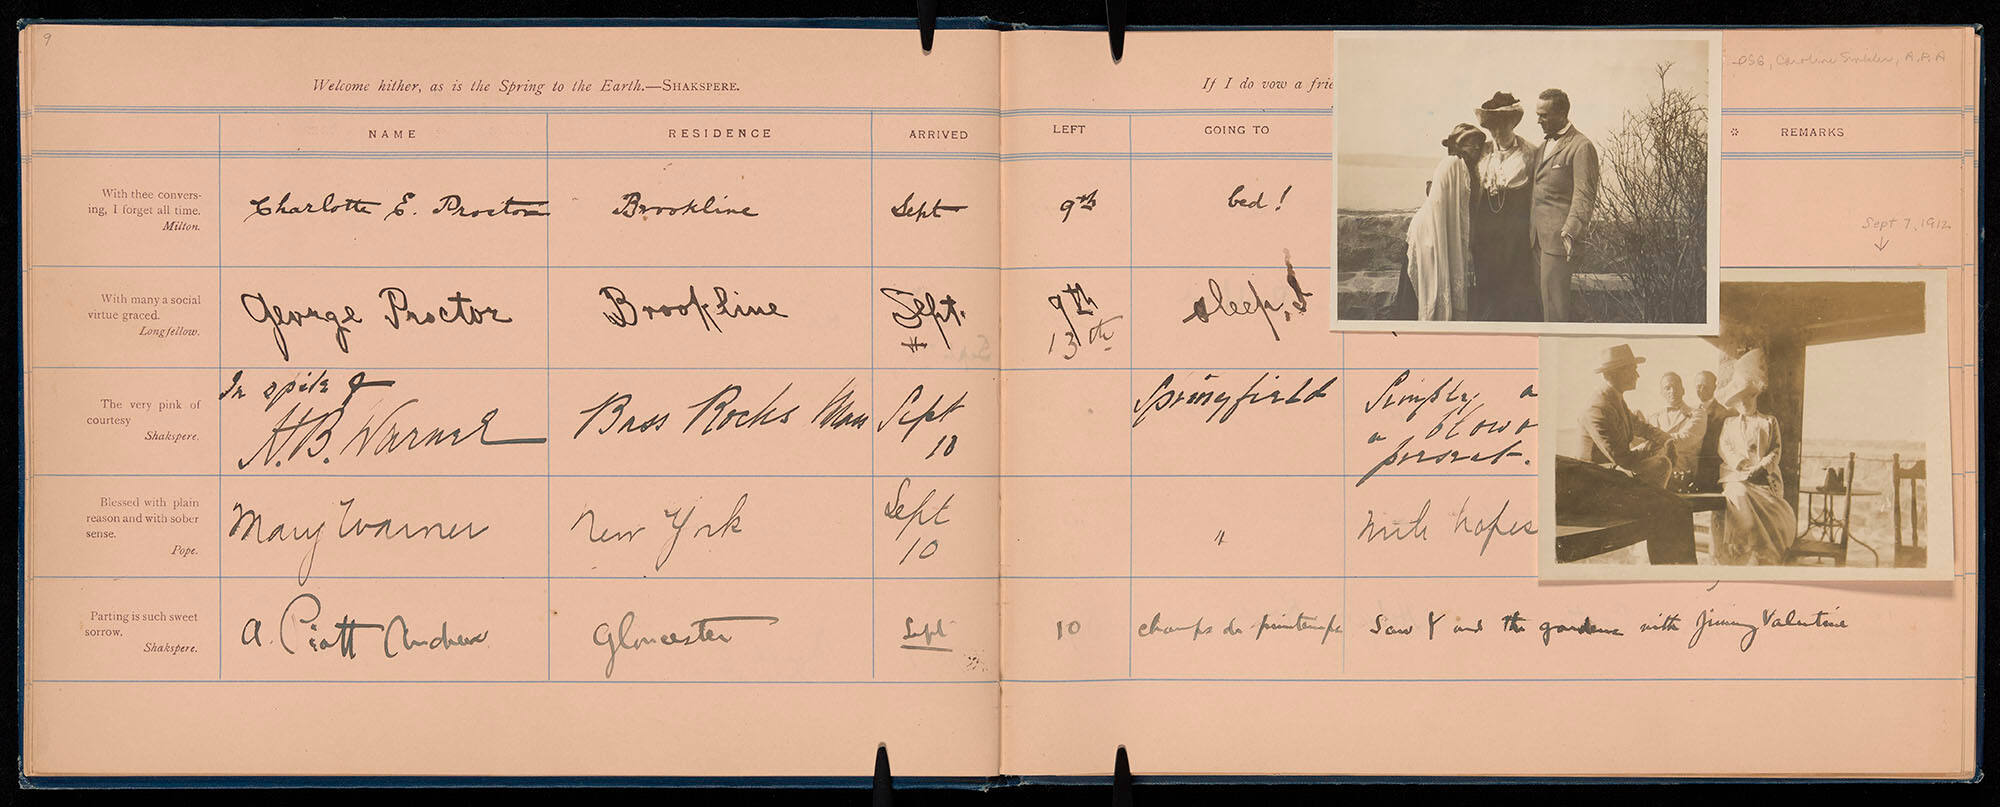 9
Welcome hither, as is the Spring to the Earth.—SHAKSPERE.
If I do vow a frie
DSG, Caroline Sinkler, A.P.A
NAME RESIDENCE ARRIVED LEFT GOING TO REMARKS
With thee convers-
ing, I forget all time.
Milton.
Charlotte E. Proctor Brookline Sept 9th bed!
Sept 7, 1912
With many a social
virtue graced.
Longfellow.
George Proctor Brookline Sept. 9th sleep,
13th
In spite of
The very pink of
courtesy
Shakspere.
H.B. Warner Bass Rocks Mass Sept
10
Springfield Simply a
a blow
Blessed with plain
reason and with sober
sense.
Pope.
Mary Warner New York Sept
10
" with hopes
Parting is such sweet
sorrow.
Shakspere.
A. Piatt Andrew Gloucester Sept 10 champs de printemps Saw Y and the gardens with Jimmy Valentine